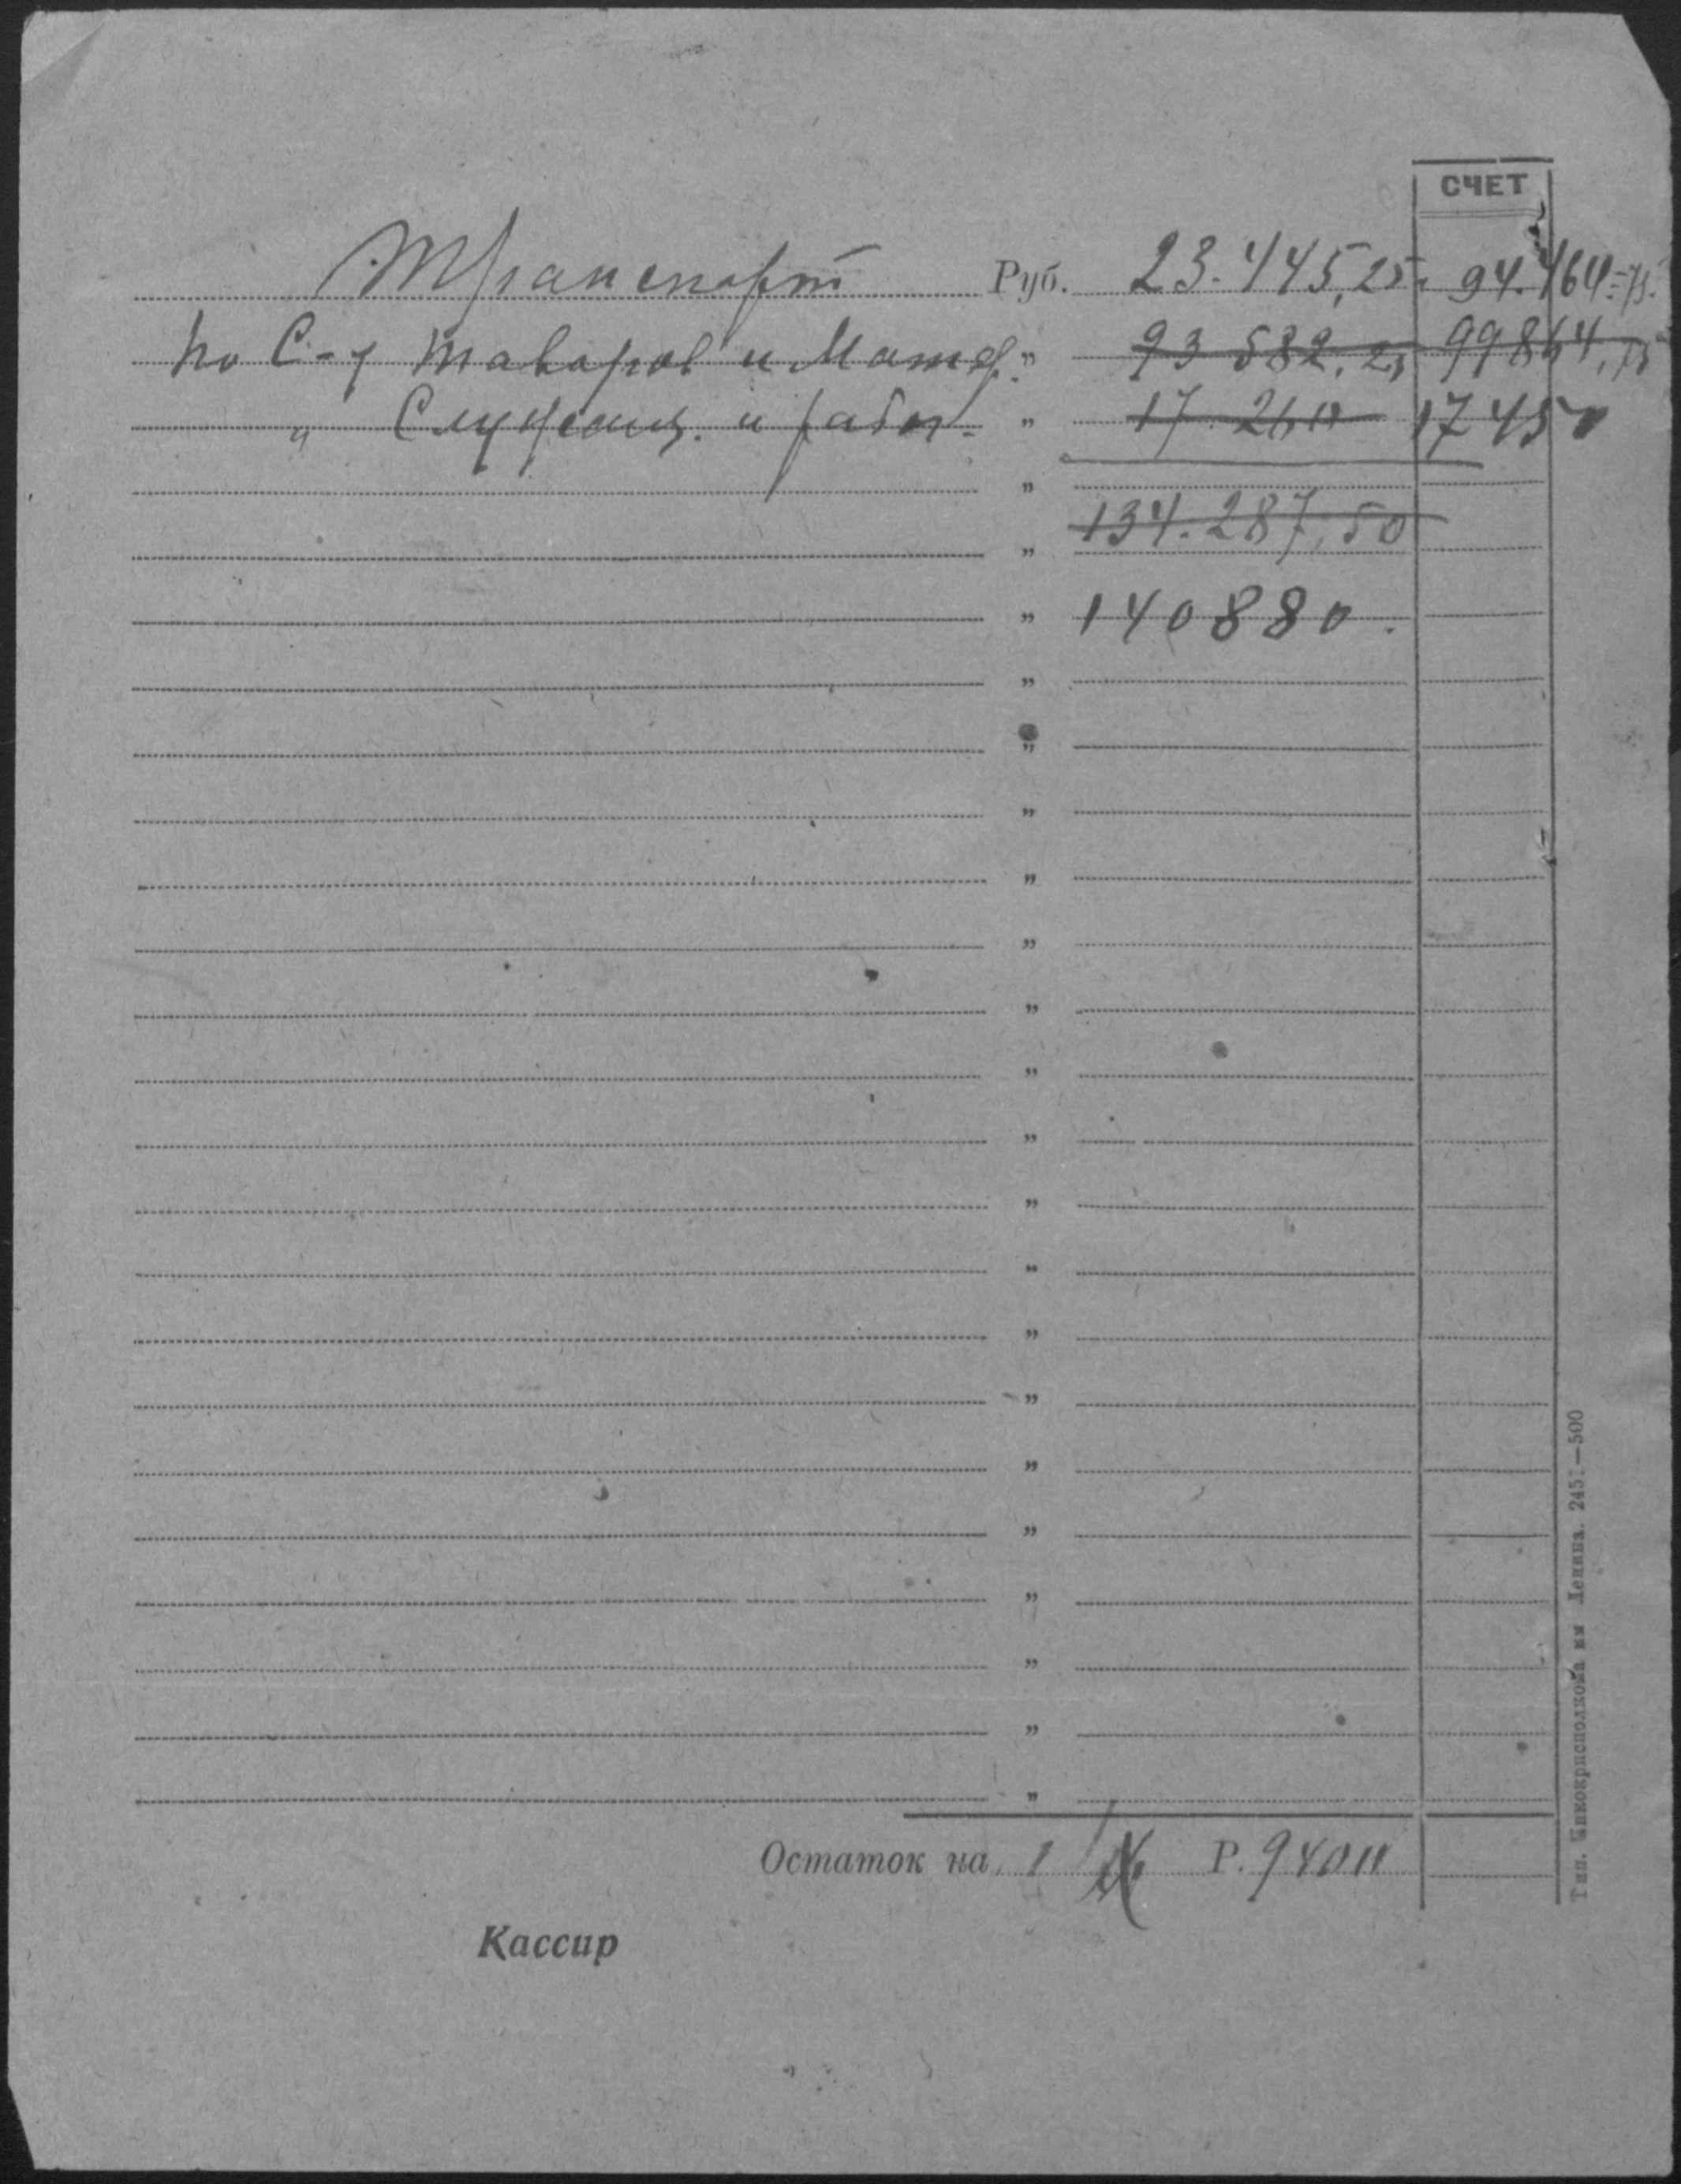 СЧЕТ
Транспорт Руб. 23.445,25 94.464=75
По С-у Товаров и Матер. " 93 582,25 99864,75
" Служащ. и рабоч. " 17 260 17450
"
" 134.287,50
" 140880.
"
"
"
"
"
"
"
"
"
"
"
"
"
"
"
"
"
"
Остаток на 1 Р. 9400
Кассир
Тип. Чикокрисполкома им Ленина. 245 —500